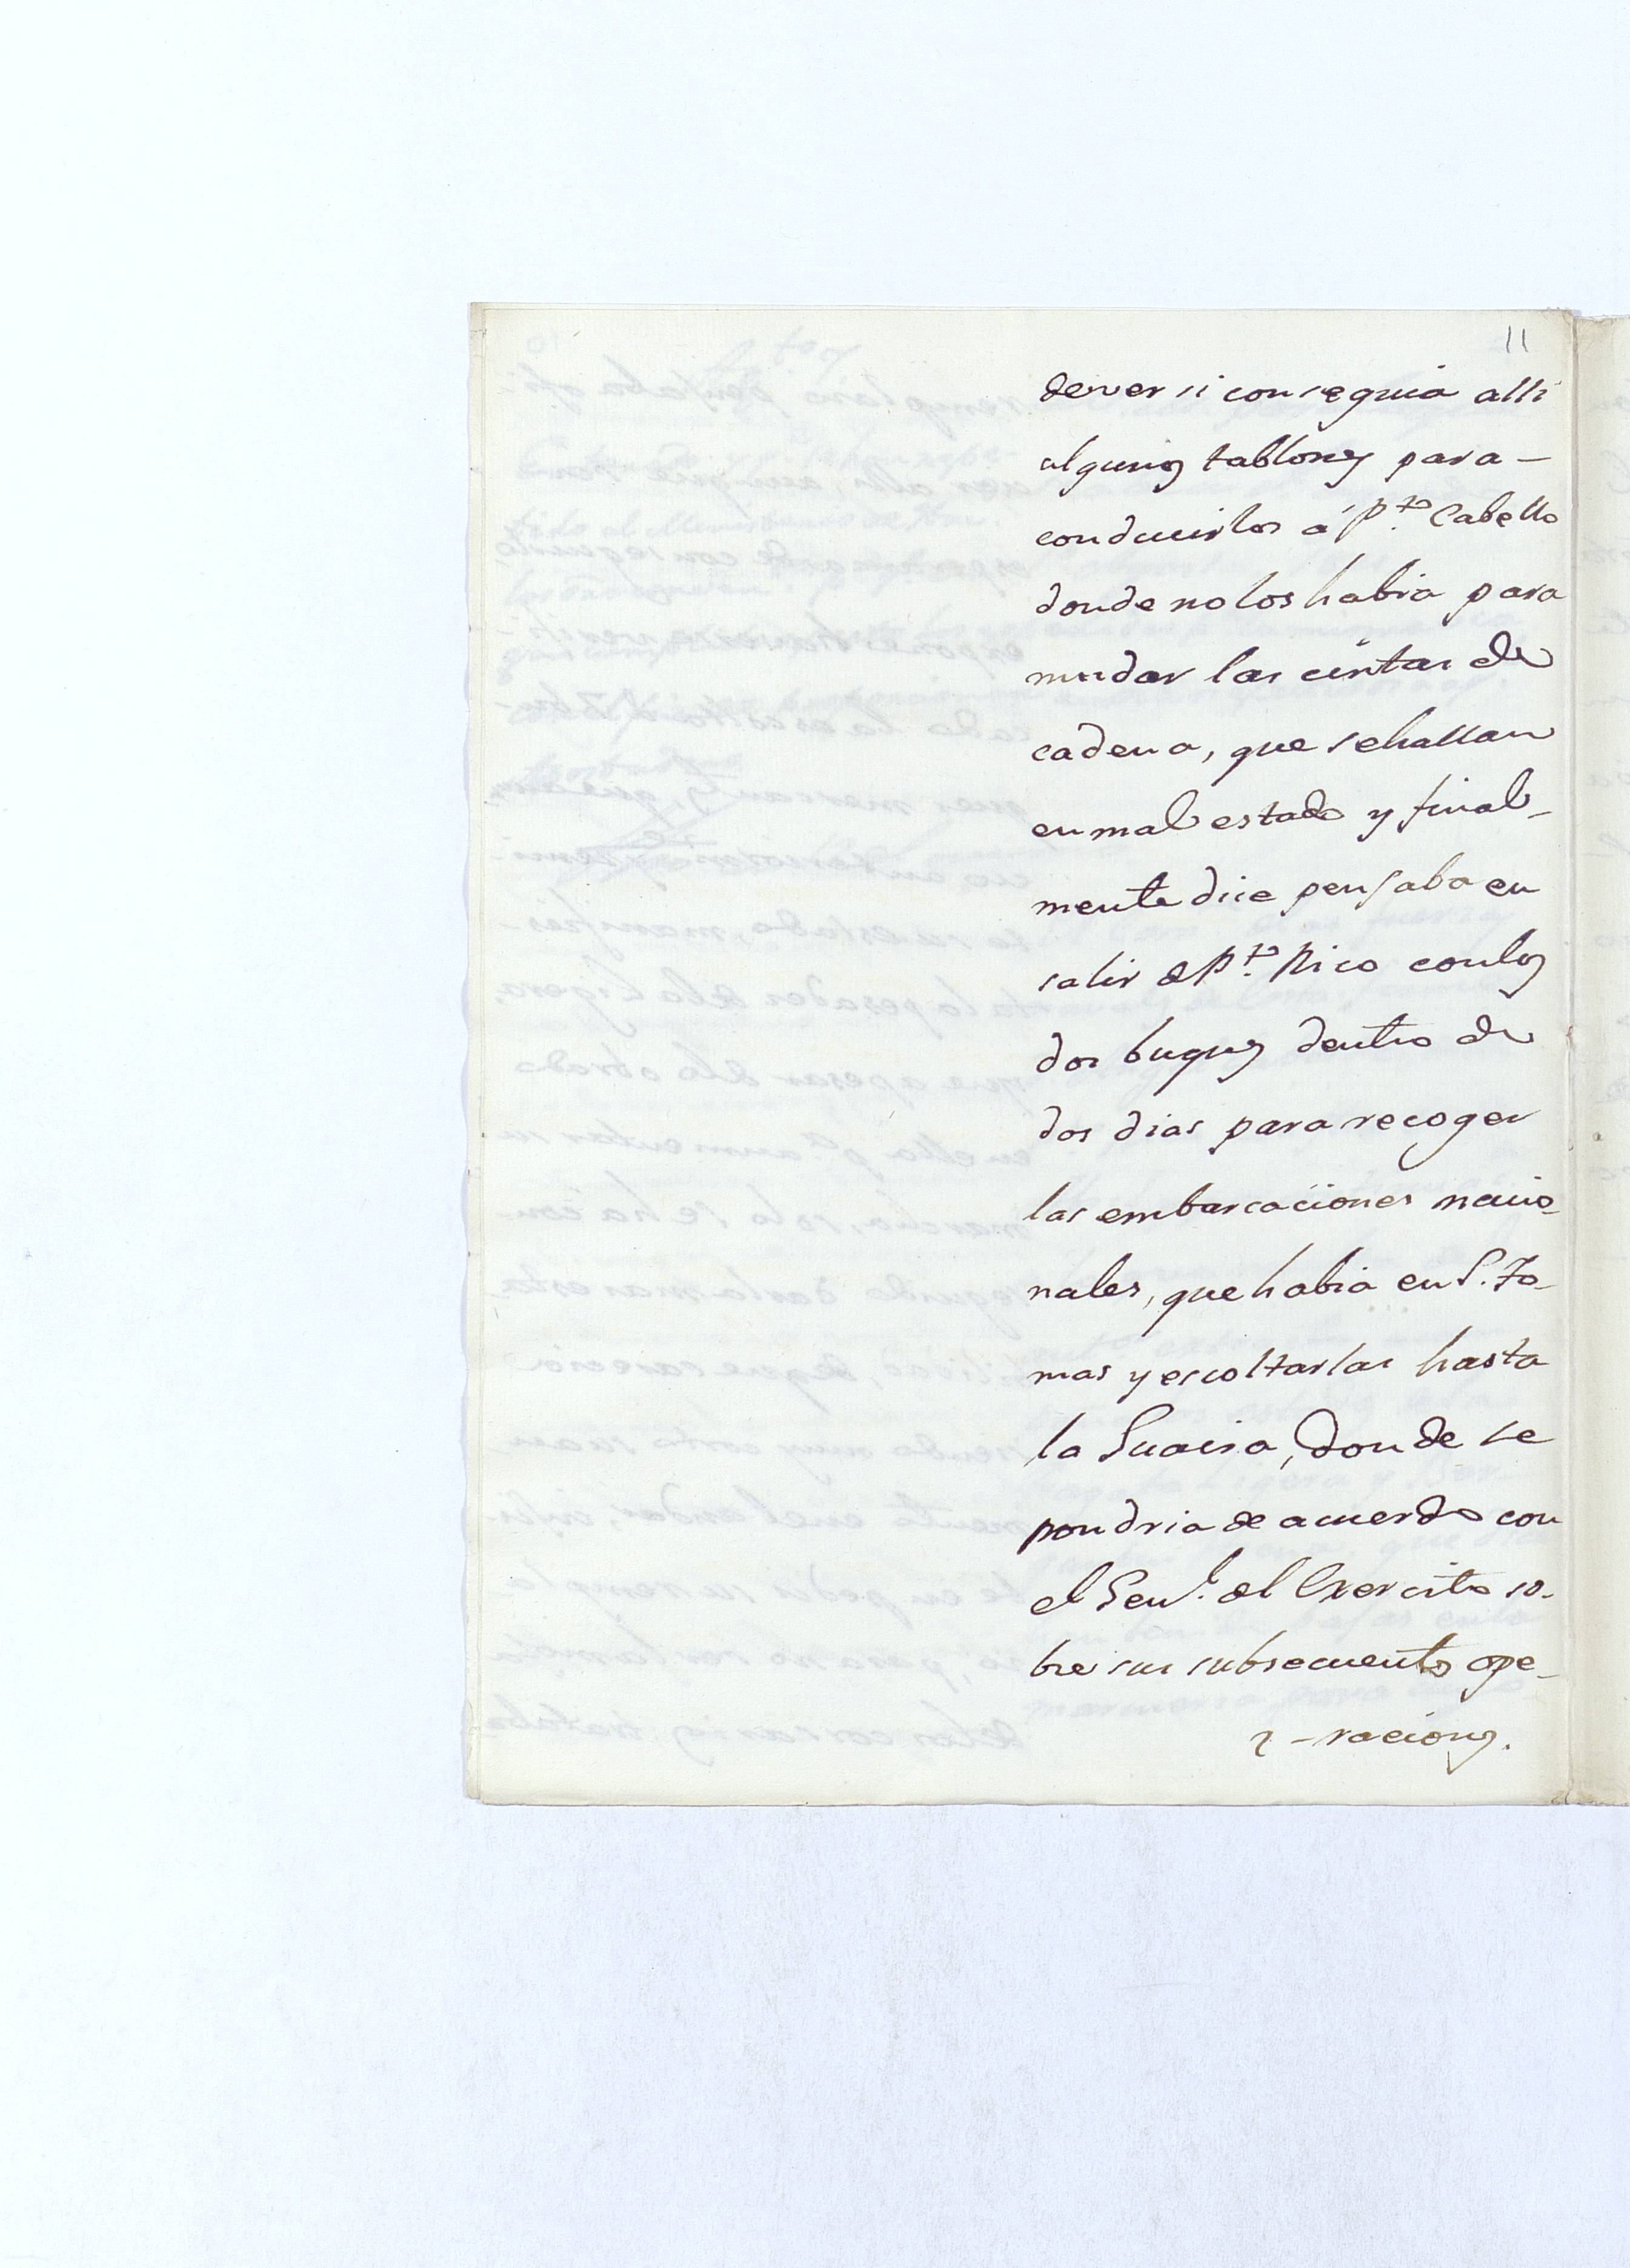 11
de ver si conseguia alli
algunos tablones para -
conducirlos á P.to Cabello
donde no los habia para
mudar las cintas de
cadena, que se hallan
en mal estado y final-
mente dice pensaba en
salir de P.to Rico con los
dos buques dentro de
dos dias para recoger
las embarcaciones nacio-
nales, que habia en S. To-
mas y escoltarlas hasta
la Guaira, donde se
pondria de acuerdo con
el Gen.l del Exercito so-
bre sus subsecuentes ope-
- raciones.